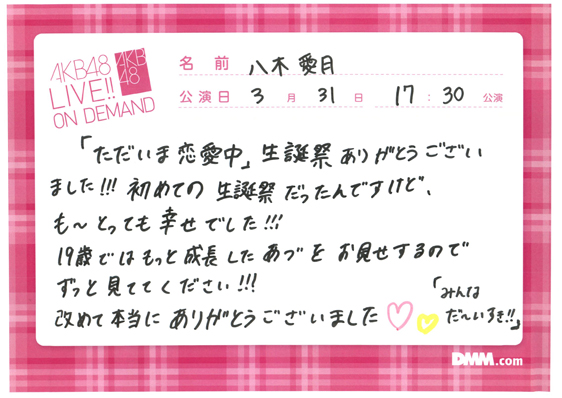 AKB48
LIVE!!
ON DEMAND
AKB
48
名前 八木 愛月
公演日 3月 31日 17:30 公演
「ただいま恋愛中」生誕祭ありがとうござい
ました!!! 初めての生誕祭だったんですけど、
も〜とっても幸せでした!!!
19歳ではもっと成長したあづをお見せするので
ずっと見ててください!!!
改めて本当にありがとうございました
「みんな
だ〜いすき!!」
DMM.com